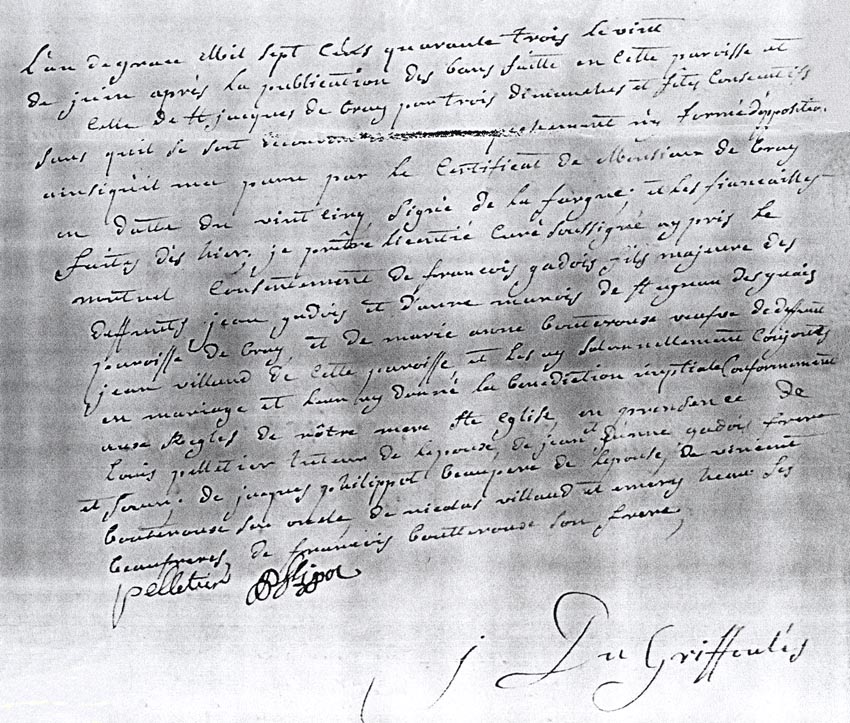 L'an de grace Mil sept Cens quarante trois le vint
de juin après la publication des bans faitte en cette paroisse et
celle de St jacques de Cray par trois dimanches et fetes Consecutifs
sans quil se soit decouvert empechement n'y formé d'opposition
ainsiquil ma paru par le Certificat de Monsieur de Cray
en datte du vint cinq signé de la fargue, et les fiancailles
faites dès hier, je prêtre licentié Curé soussigné ay pris le
mutuel Consentement de francois gadois fils majeure des
deffunts jean gadois et d'anne marois de St ugnan des guais
paroisse de Cray et de marie anne bouterouse veufve de defunt
jean villaud de cette paroisse et les ay solannellement Conjoints
en mariage et leur ay donné la benediction nuptiale Conformement
aux Regles de nôtre mere Ste eglise, en presence de
louis pelletier tuteur de lepoux, de jean et jeanne gadois frere
et soeur, de jacques philippot beaupere de lepouse, de vincent
bouterouse son oncle, de nicolas villaud et emery heau ses
beaufreres, de francois boutterouse son frere,
pelletier philippot
j Du Griffoulés